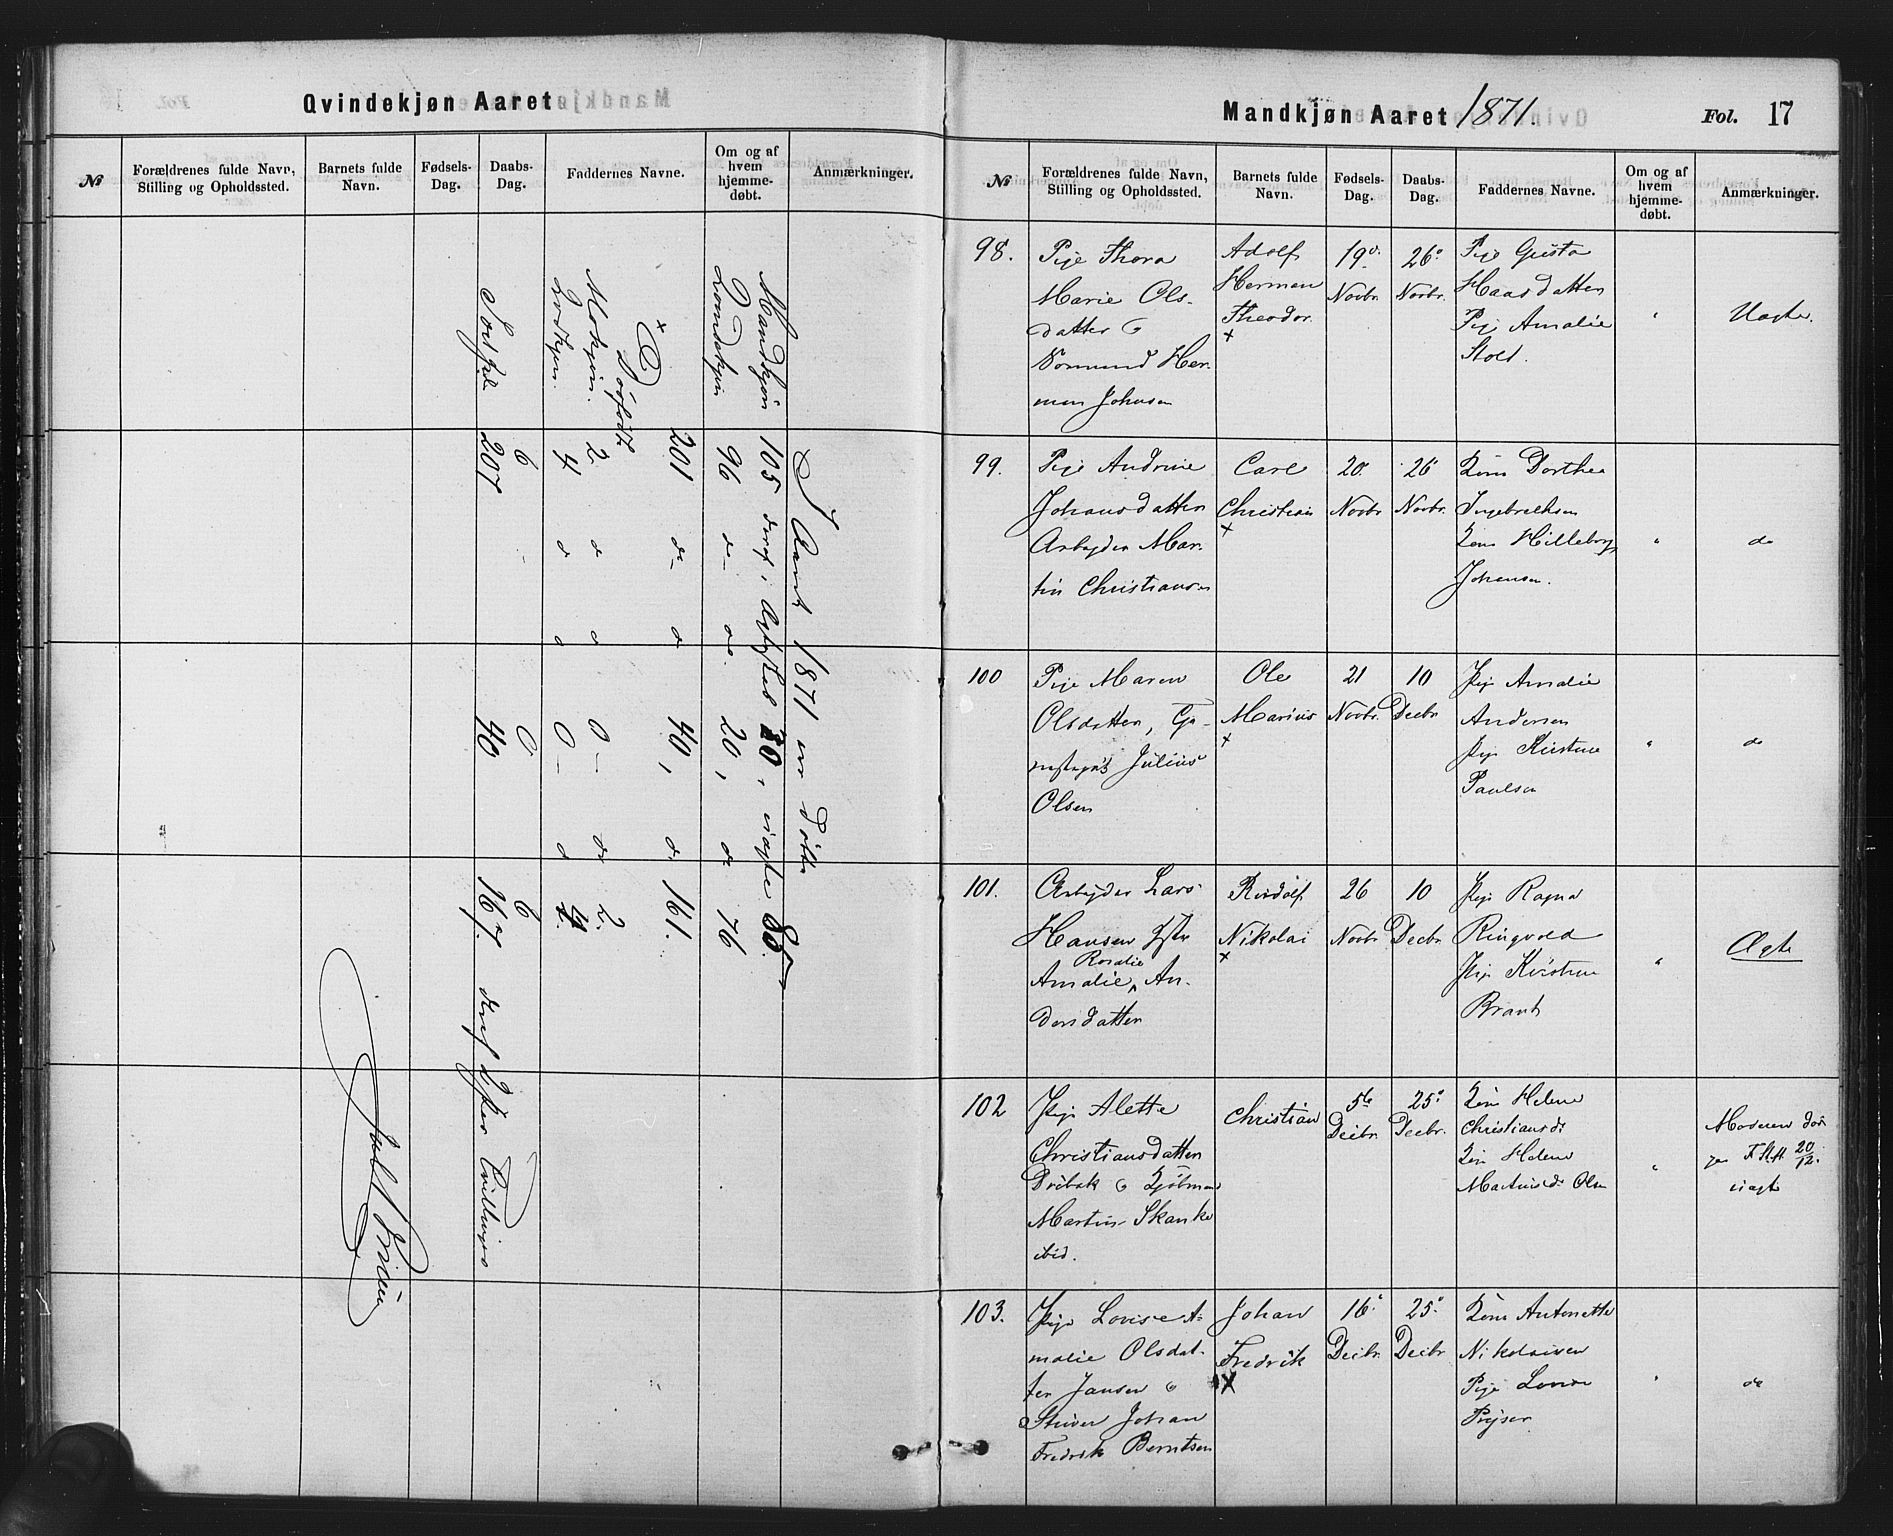 Qvindekjøn Aaret
№
Forældrenes fulde Navn, Stilling og Opholdssted.
Barnets fulde Navn.
Fødsels-Dag.
Daabs-Dag.
Faddernes Navne.
Om og af hvem hjemme-døbt.
Anmærkninger.
I Aaret 1871 er døbte
Mandkjøn 105 deraf i 20, uægte 85
Qvindekjøn 96 do do 20, do 76
201 do do 40, do 161.
Dødfødt
Mckjøn. 2 do do 0 — do 2.
Qvdkjøn. 4 do do 0 — do 4.
6 - 0 6
207 40 167. deraf Tvillinger
Mandkjøn Aaret 1871.
Fol. 17
№
Forældrenes fulde Navn, Stilling og Opholdssted.
Barnets fulde Navn.
Fødsels-Dag.
Daabs-Dag.
Faddernes Navne.
Om og af hvem hjemme-døbt.
Anmærkninger.
98.
Pige Thora
Marie Ols-
datter &
Her-
man Johnsen
Adolf
Herman
Theodor.
×
19de
Novbr.
26.
Novbr.
Pige Gusta
Haasdatter
Pige Amalie
Stoed.
"
Uægte.
99.
Pige Andrine
Johansdatter
Arbejder Mar-
tin Christiansen
Carl
Christian
×
20.
Novbr
26
Novbr.
Kone Dorthea
Ingebretsen
Kone Hilleborg
Johansen.
"
do
100
Pige Maren
Olsdatter,
Julius
Olsen
Ole
Marius
×
21
Novbr.
10
Decbr
Pige Amalie
Andersen
Pige Kirstine
Paulsen
"
do
101.
Arbejder Lars
Hansen Hstr
Rosalie
Amalie ^ An-
dersdatter
Rudolf
Nikolai
×
26
Novbr
10
Decbr
Pige Ragna
Ringvold
Pige Kirstine
Brandt
"
Ægte
102
Pige Alette
Christiansdatter
Drøbak &
Martin Skanke
ibid.
Christian
5te
Decbr.
25.
Decbr.
Kone Helene
Christiansdr
Kone Helene
Martinsdr Olsen
"
Moderen død
20/12.
uægte
103.
Pige Lovise A-
malie Olsdat-
ter Jansen &
Johan
Fredrik Berntsen
Johan
Fredrik
×
16.
Decbr.
25.
Decbr
Kone Antonette
Nikolaisen
Pige Lovise
"
do